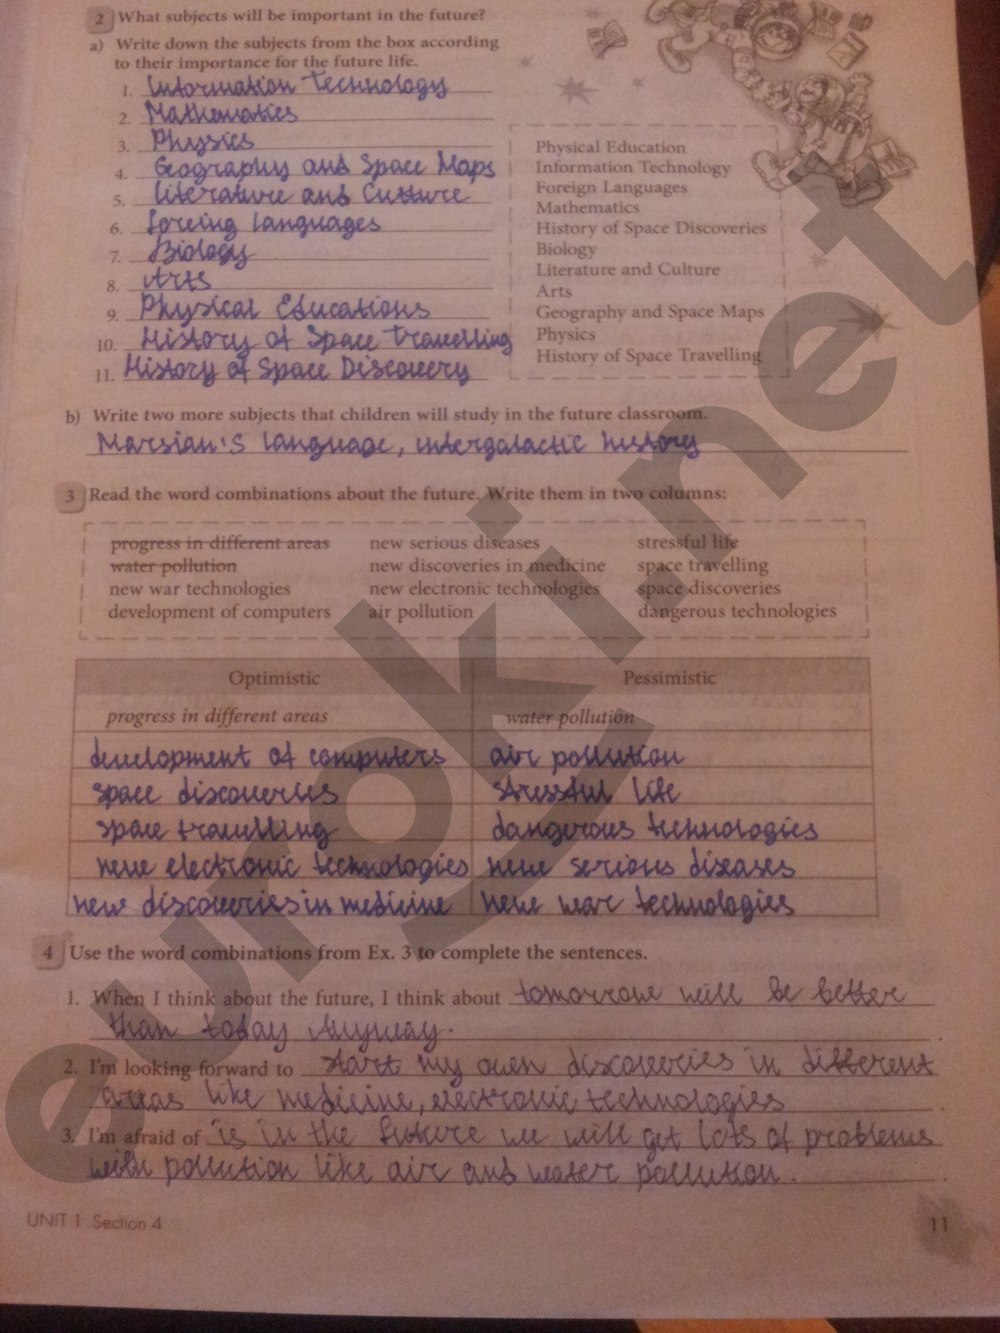 2 What subjects will be important in the future?
a) Write down the subjects from the box according
to their importance for the future life.
1. Information Technology
2. Mathematics
3. Physics
4. Geography and Space Maps
5. Literature and Culture
6. foreing languages
7. Biology
8. Arts
9. Physical Educations
10. History of Space Travelling
11. History of Space Discovery
Physical Education
Information Technology
Foreign Languages
Mathematics
History of Space Discoveries
Biology
Literature and Culture
Arts
Geography and Space Maps
Physics
History of Space Travelling
b) Write two more subjects that children will study in the future classroom.
Marsian's language, intergalactic history
3 Read the word combinations about the future. Write them in two columns:
progress in different areas new serious diseases stressful life
water pollution new discoveries in medicine space travelling
new war technologies new electronic technologies space discoveries
development of computers air pollution dangerous technologies
Optimistic Pessimistic
progress in different areas water pollution
development of computers air pollution
space discoveries stressful life
space travelling dangerous technologies
new electronic technologies new serious diseases
new discoveries in medicine new war technologies
4 Use the word combinations from Ex. 3 to complete the sentences.
1. When I think about the future, I think about tomorrow will be better
than today anyway.
2. I'm looking forward to start my own discoveries in different
areas like medicine, electronic technologies.
3. I'm afraid of is in the future we will get lots of problems
with pollution like air and water pollution.
UNIT 1 Section 4
11
euroki.net